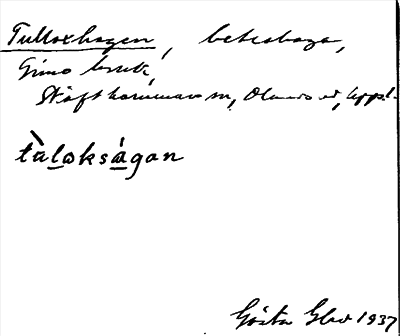 Tulloxhagen, beteshage,
Gimo bruk,
Skäfthammar sn, Olands hd, Uppl.
tùlͅoksáͅgan
Gösta Glad 1937